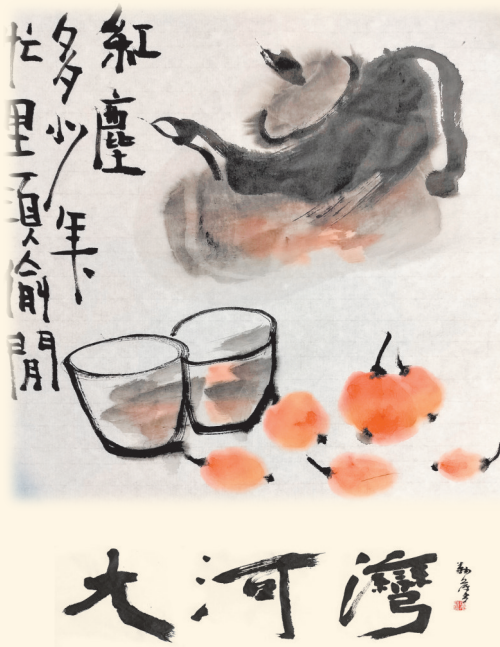 紅塵
多少年
忙里頭偷閒
大河灣